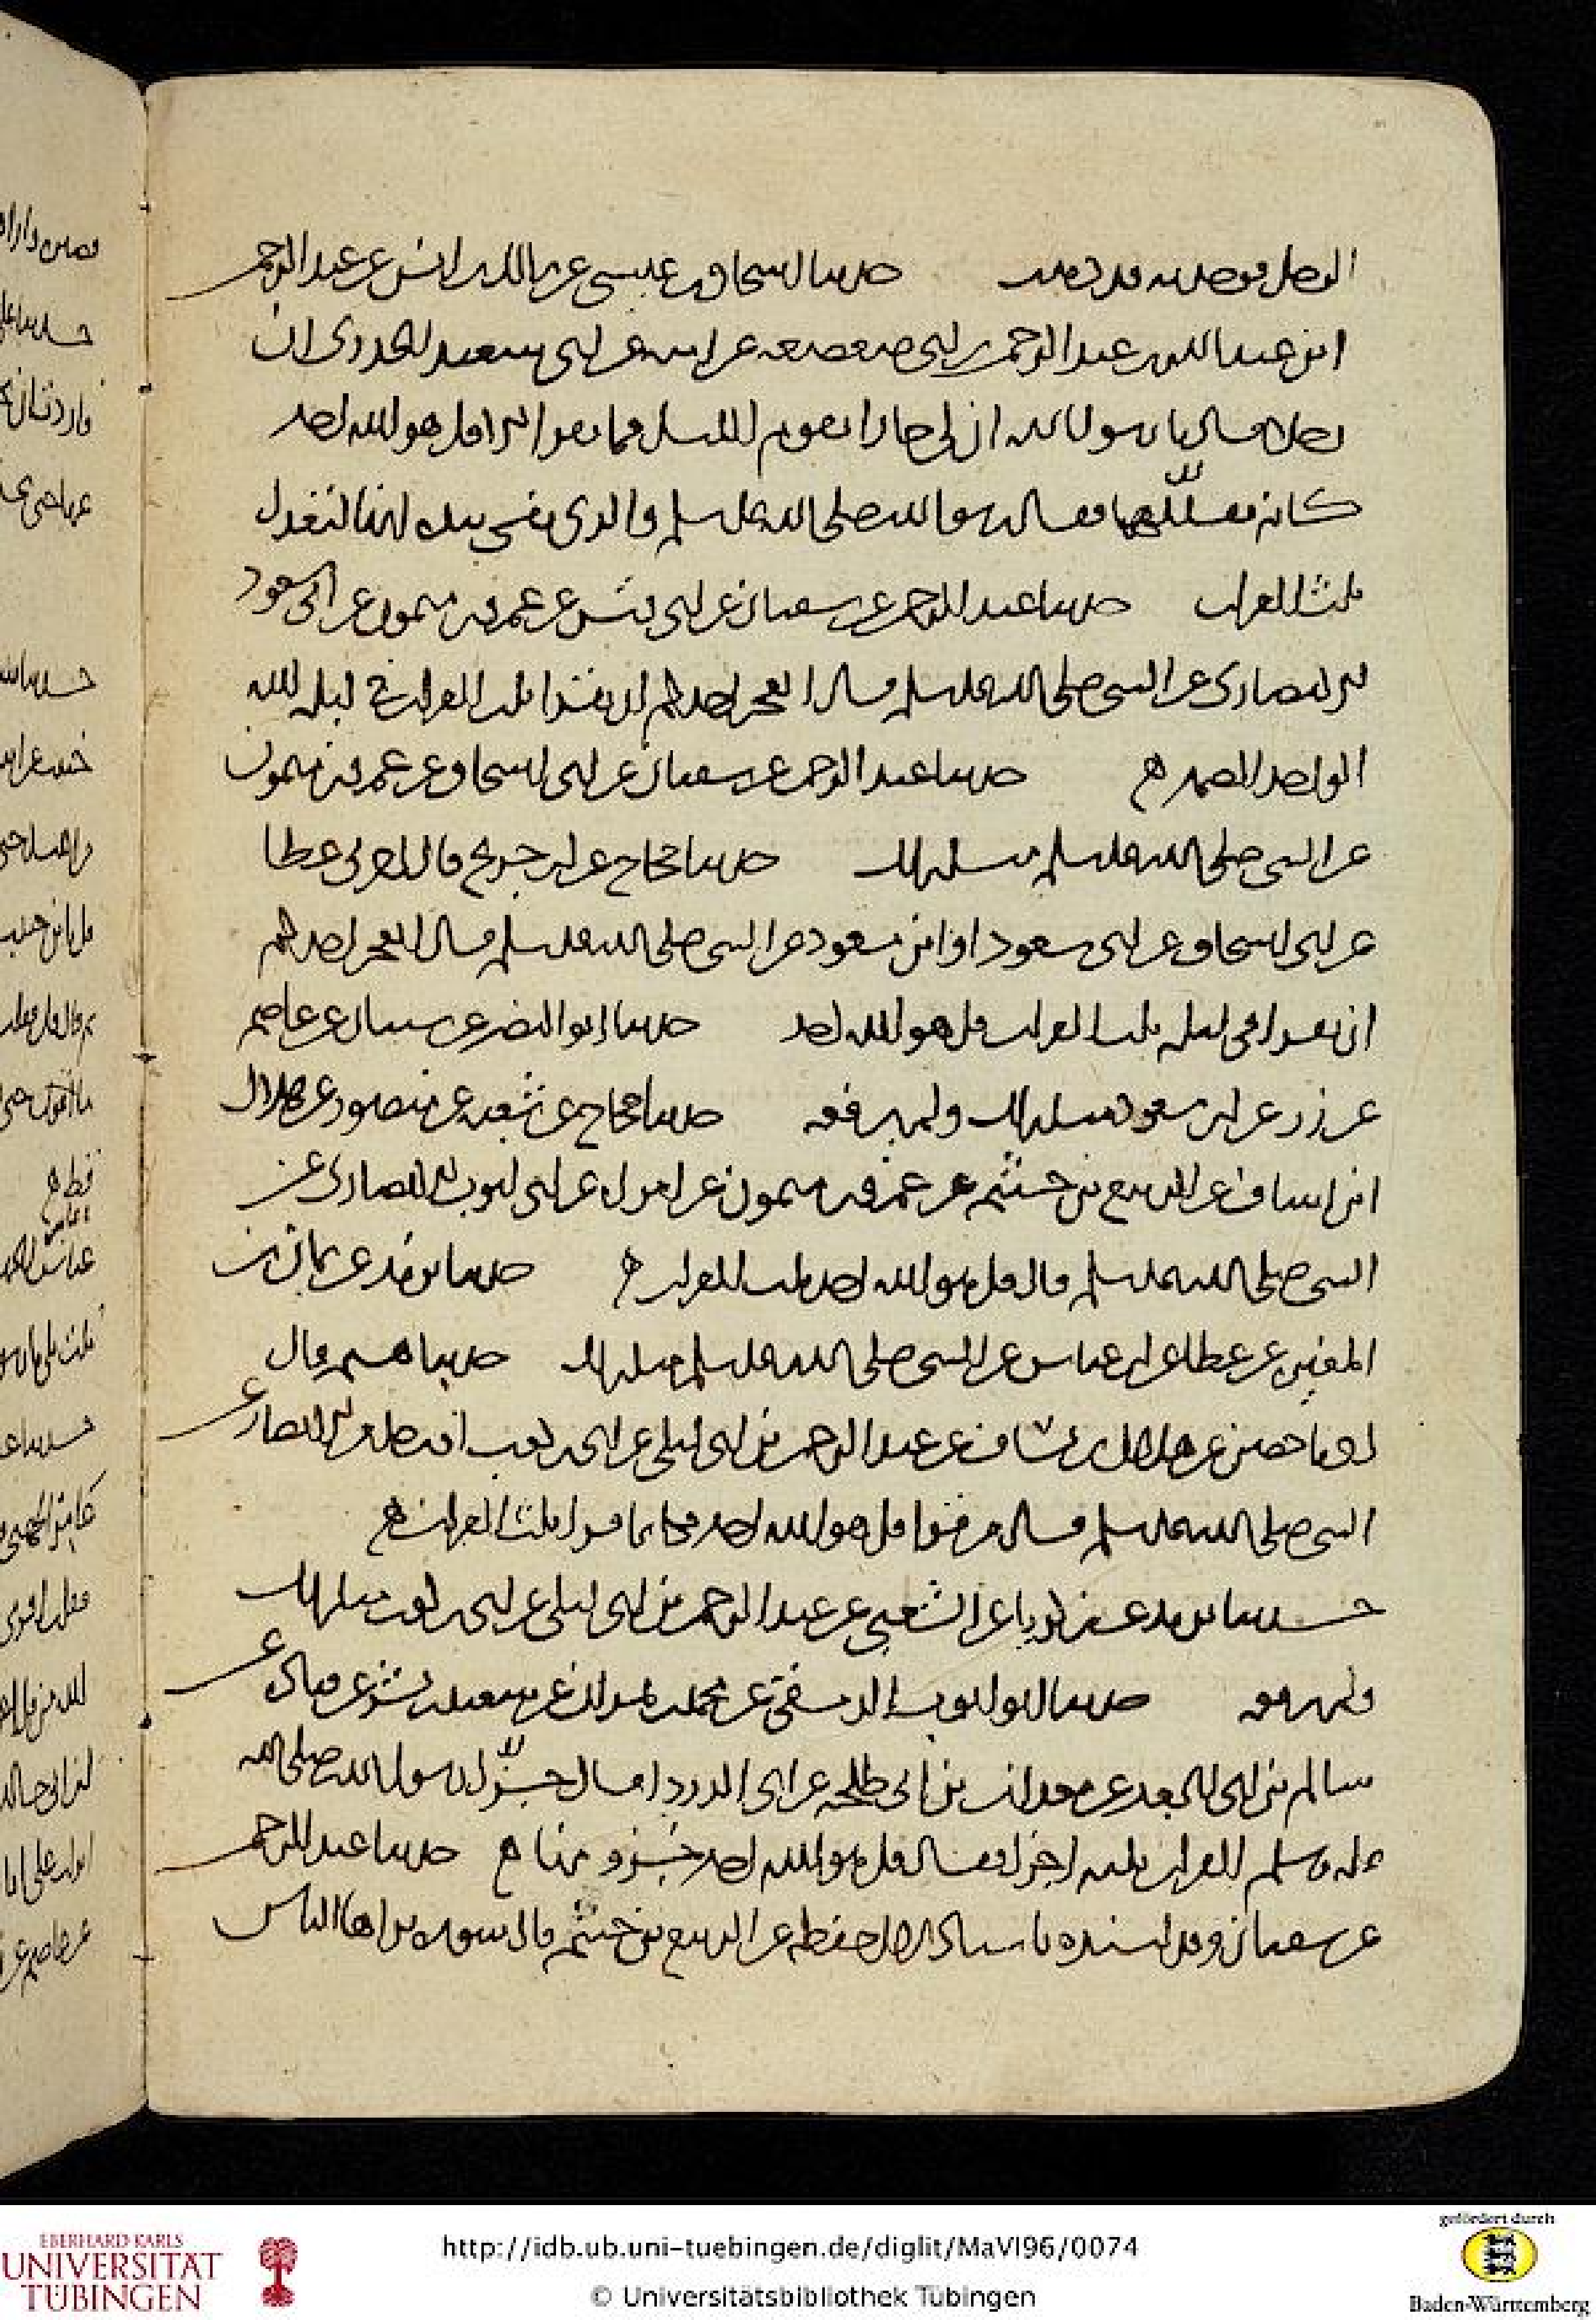 الرجل فوجدته قد دهب حدثنا اسحاق بن عيسى عن مالك بن انس عن عبد الرحمن
ابن عبد الله بن عبد الرحمن بن ابي صعصعه عن ابيه عن ابي سعيد الخدري ان
رجلا قال يا رسول الله ان لي جارا يقوم الليل فما يقرا الا قل هو الله احد
كانه يقللها فقال رسول الله صلى الله عليه وسلم والدي نفسي بيده انها لتعدل
ثلث القران حدثنا عبد الرحمن عن سفيان عن ابي قيس عن عمرو بن ميمون عن ابي مسعود
الانصاري عن النبي صلى الله عليه وسلم قال ايعجز احدكم ان يقرا ثلث القران في ليله الله
الواحد الصمد ه حدثنا عبد الرحمن عن سفيان عن ابي اسحاق عن عمرو بن ميمون
عن النبي صلى الله عليه وسلم مثل ذلك حدثنا حجاج عن ابن جريج قال اخبرني عطا
عن ابي اسحاق عن ابي مسعود او ابن مسعود عن النبي صلى الله عليه وسلم قال ايعجز احدكم
ان يقرا في ليله ثلث القران قل هو الله احد حدثنا ابو النضر عن شيبان عن عاصم
عن زر عن ابن مسعود مثل ذلك ولم يرفعه حدثنا حجاج عن شعبه عن منصور عن هلال
ابن يساف عن الربيع بن خثيم عن عمرو بن ميمون عن امراه عن ابي ايوب الانصاري عن
النبي صلى الله عليه وسلم قال قل هو الله احد ثلث القران ه حدثنا يزيد عن يمان بن
المغيره عن عطا عن ابن عباس عن النبي صلى الله عليه وسلم مثل ذلك حدثنا هشيم قال
اخبرنا حصين عن هلال بن يساف عن عبد الرحمن بن ابي ليلى عن ابي بن كعب او رجل من الانصار عن
النبي صلى الله عليه وسلم قال من قرا قل هو الله احد فكانما قرا ثلث القران ه
حدثنا يزيد عن زكريا عن الشعبي عن عبد الرحمن بن ابي ليلى عن ابي بن كعب مثل ذلك
ولم يرفعه حدثنا ابو ايوب الدمشقي عن محمد بن عن سعيد بن بشر عن قتاده عن
سالم بن ابي الجعد عن معدان بن ابي طلحه عن ابي الدردا قال جزّا رسول الله صلى الله
عليه وسلم القران ثلثه اجزا فقال قل هو الله احد جزو منها ه حدثنا عبد الرحمن
عن سفيان وقد اسنده حفظه عن الربيع بن خثيم قال سوره يراها الناس
http://idb.ub.uni-tuebingen.de/diglit/MaVI96/0074
© Universitätsbibliothek Tübingen
EBERHARD KARLS
UNIVERSITÄT
TÜBINGEN
gefördert durch
Baden-Württemberg